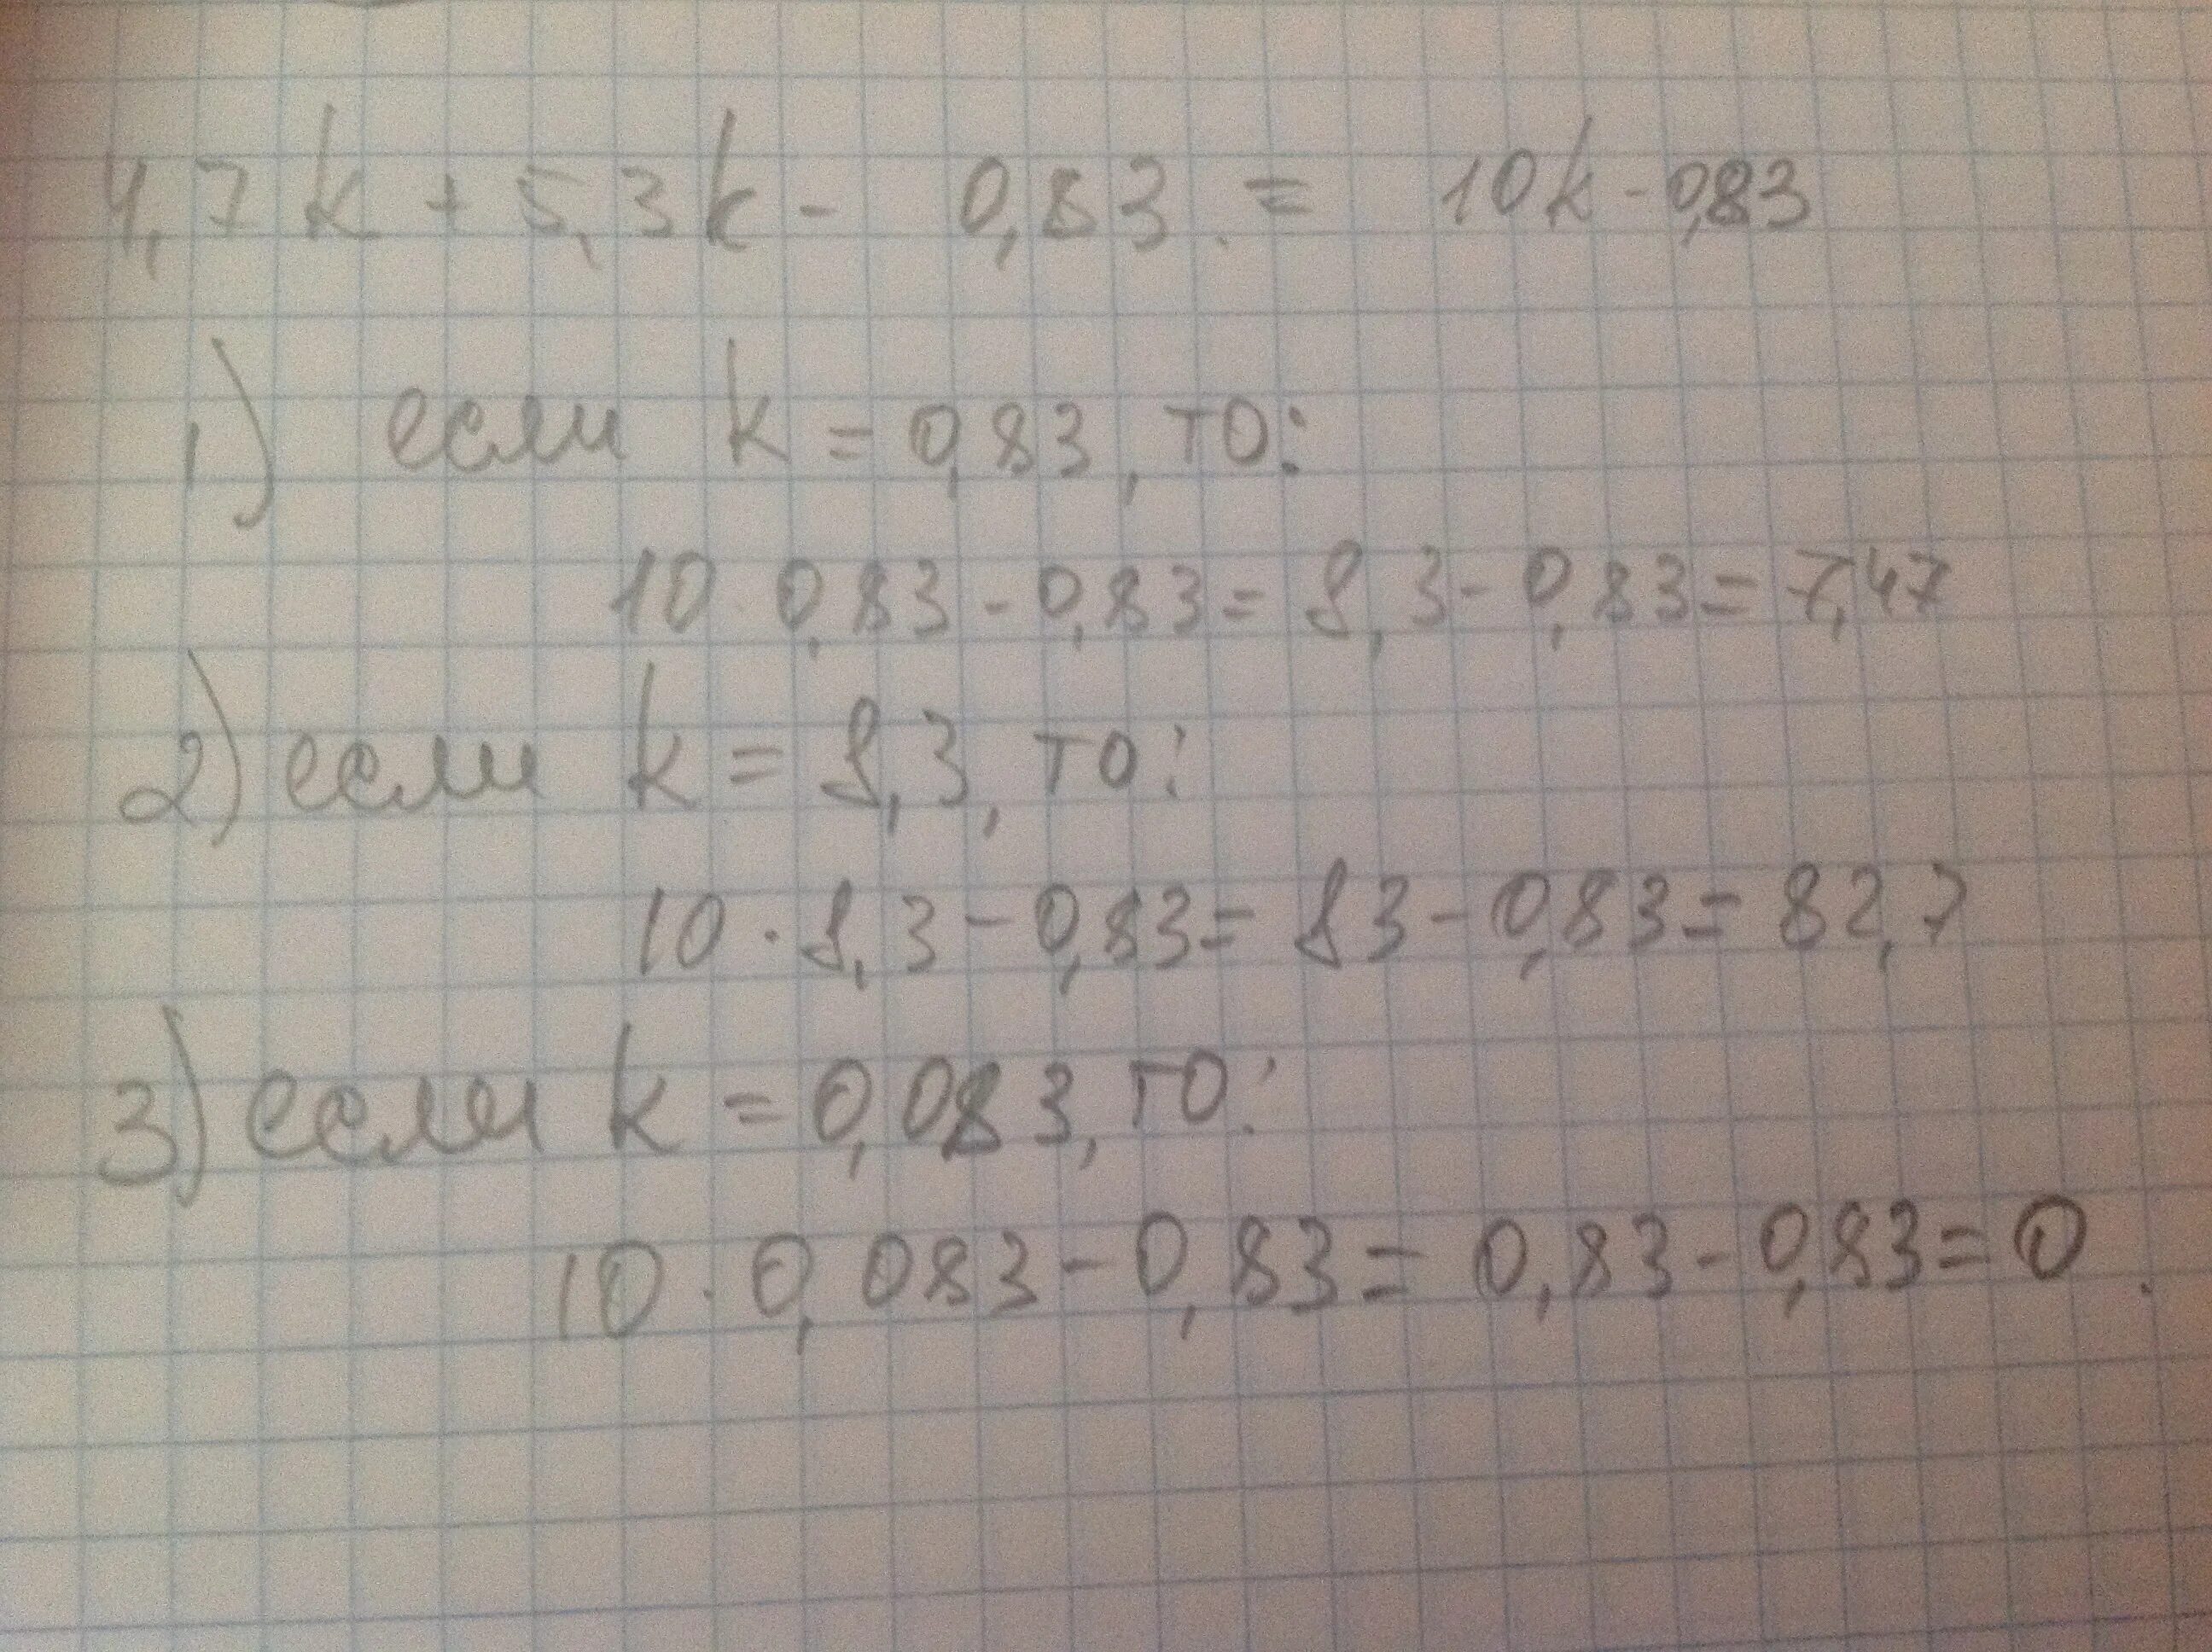 4,7k + 5,3k - 0,83. = 10k - 0,83
1) если k = 0,83, то:
10 · 0,83 - 0,83 = 8,3 - 0,83 = 7,47
2) если k = 8,3, то:
10 · 8,3 - 0,83 = 83 - 0,83 = 82,7
3) если k = 0,083, то:
10 · 0,083 - 0,83 = 0,83 - 0,83 = 0.